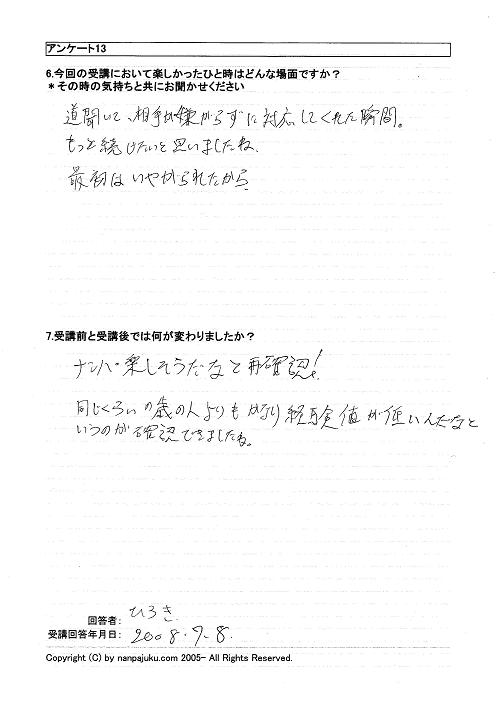 アンケート13
6.今回の受講において楽しかったひと時はどんな場面ですか？
＊その時の気持ちと共にお聞かせください
道聞いて、相手が嫌がらずに対応してくれた瞬間。
もっと続けたいと思いましたね。
最初はいやがられたから
7.受講前と受講後では何が変わりましたか？
ナンパ楽しそうだなと再確認！
同じくらいの歳の人よりもかなり経験値が低いんだなと
いうのが確認できましたね。
回答者： ひろき
受講回答年月日： 2008.7.8.
Copyright (C) by nanpajuku.com 2005- All Rights Reserved.